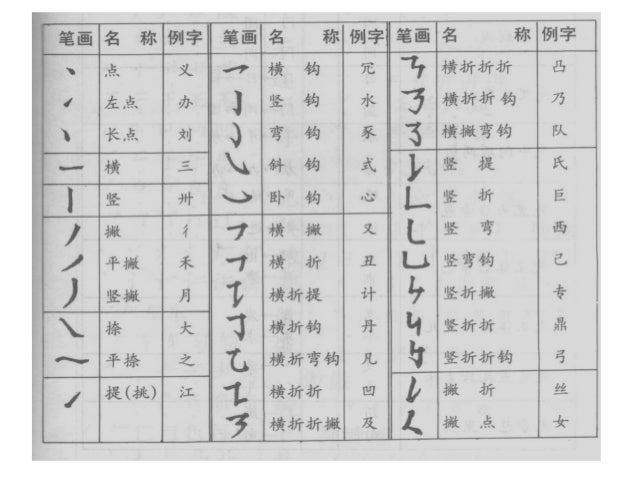 笔画 名 称 例字 笔画 名 称 例字 笔画 名 称 例字
点 义 横 钩 冗 横折折折 凸
左点 办 竖 钩 水 横折折钩 乃
长点 刘 弯 钩 豕 横撇弯钩 队
横 三 斜 钩 式 竖 提 氏
竖 卅 卧 钩 心 竖 折 巨
撇 彳 横 撇 又 竖 弯 西
平撇 禾 横 折 丑 竖弯钩 己
竖撇 月 横折提 计 竖折撇 专
捺 大 横折钩 丹 竖折折 鼎
平捺 之 横折弯钩 凡 竖折折钩 弓
提(挑) 江 横折折 凹 撇 折 丝
横折折撇 及 撇 点 女